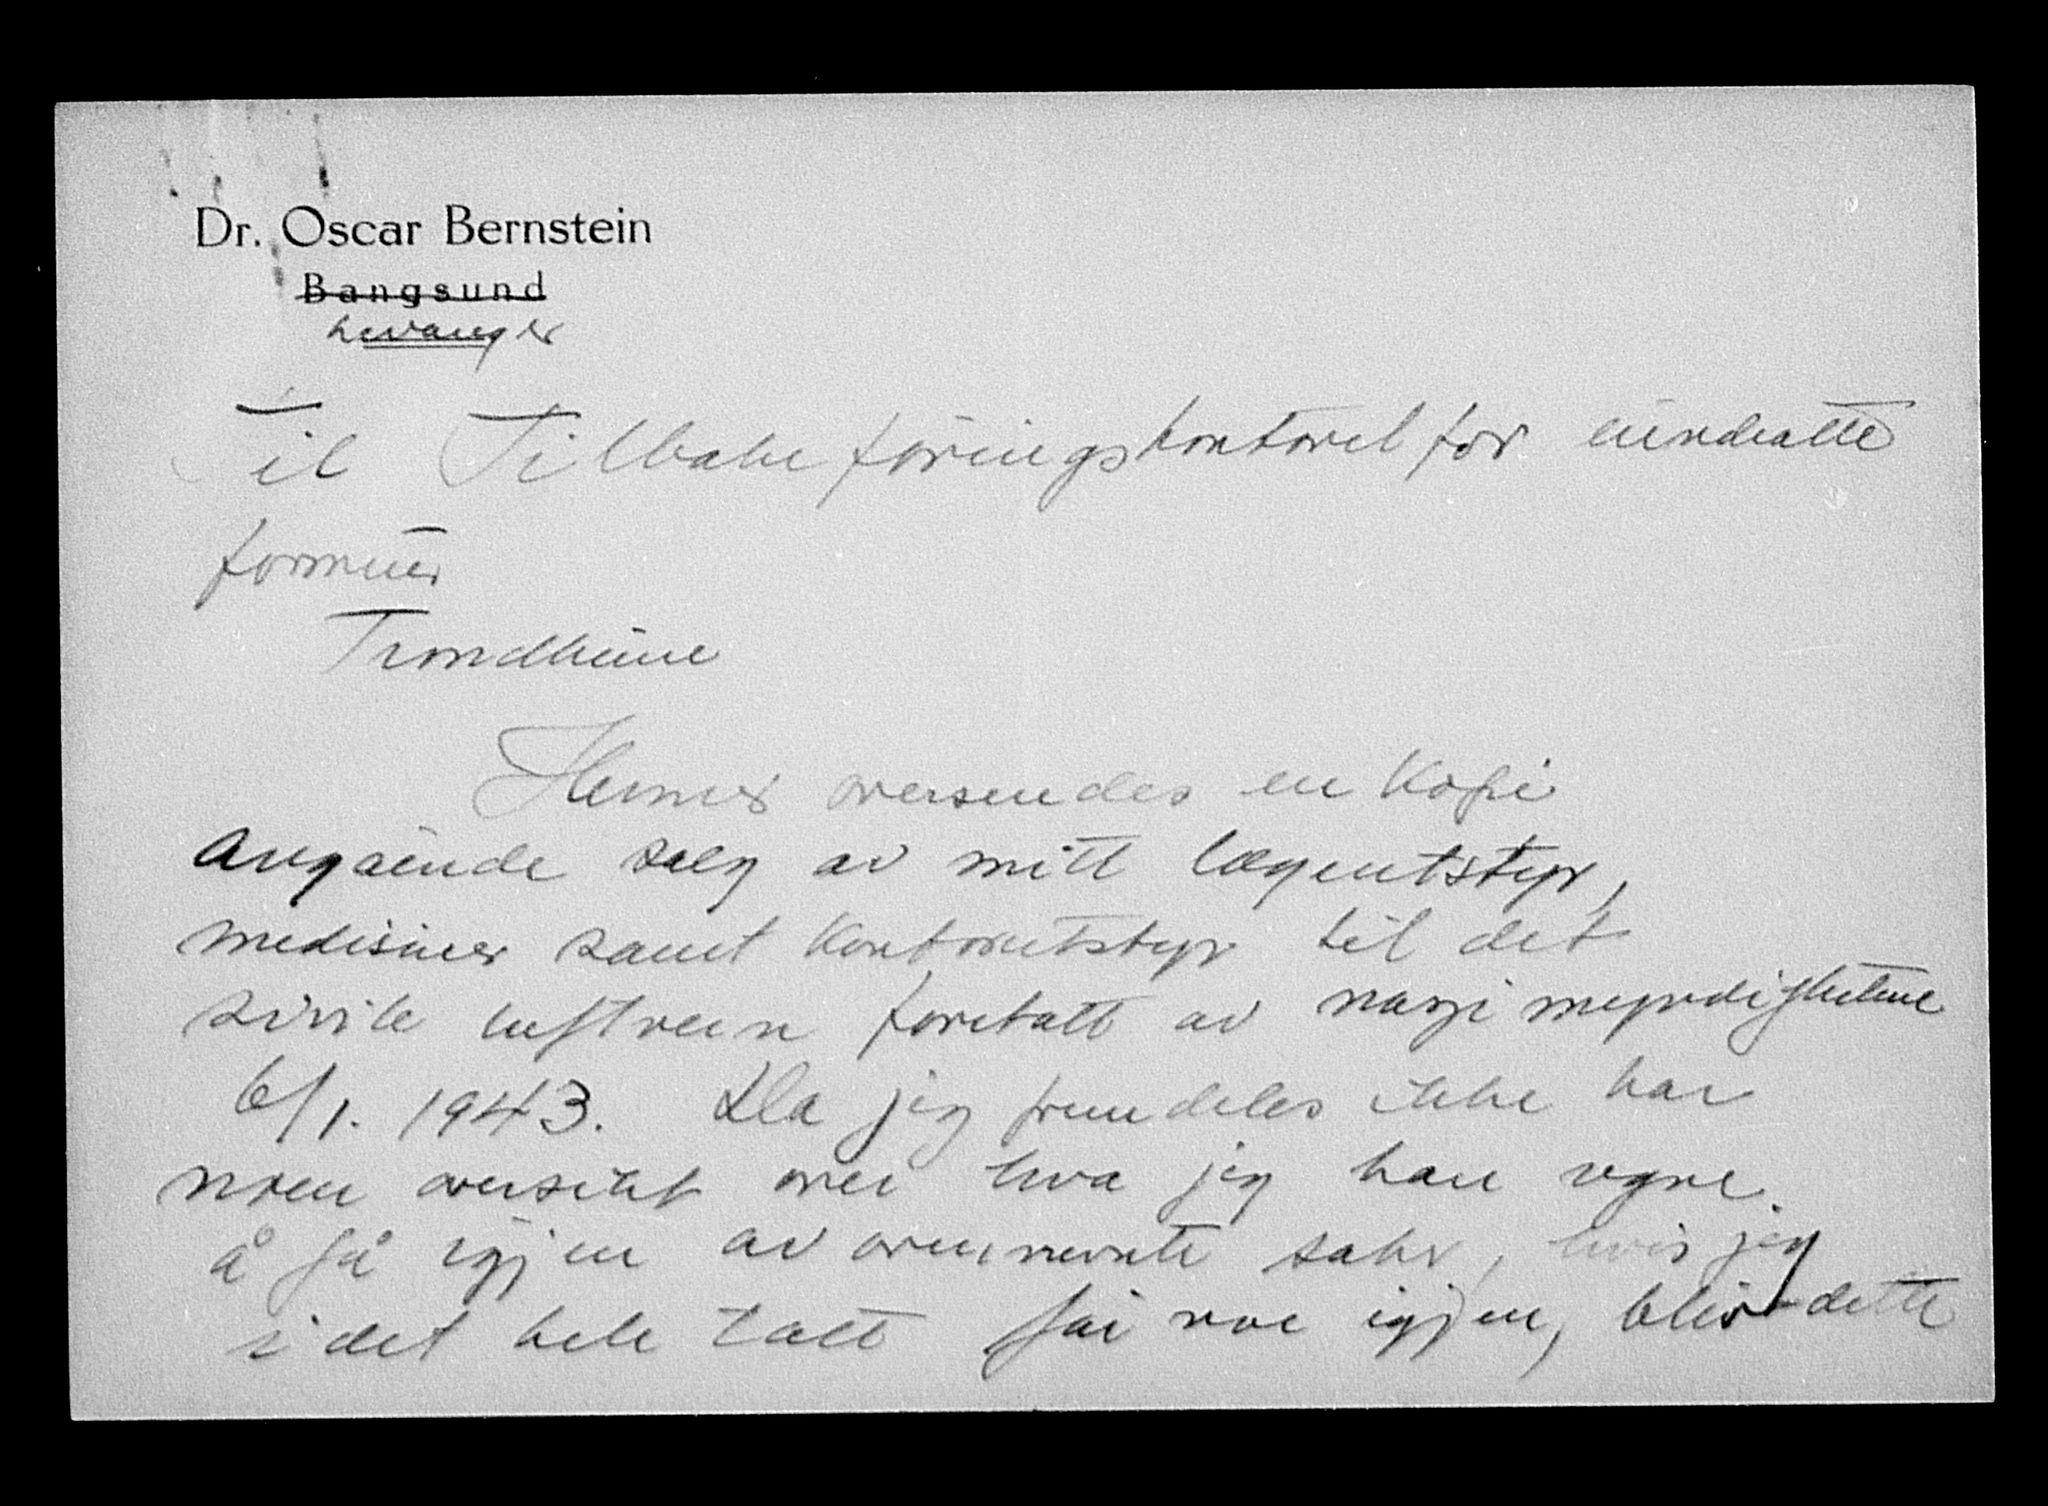 Dr. Oscar Bernstein
Bangsund
Levanger
Til Tilbakeføringskontoret for inndratte
formuer
Trondheim
Hermed oversendes en Kopi
angående salg av mitt lægeutstyr,
medisiner samt Kontorutstyr til det
sivile luftvern foretatt av nazi myndighetene
6/1. 1943. Da jeg fremdeles ikke har
noen oversikt over hva jeg kan regne
å få igjen av ovennevnte saker, hvis jeg
i det hele tatt får noe igjen, blir dette